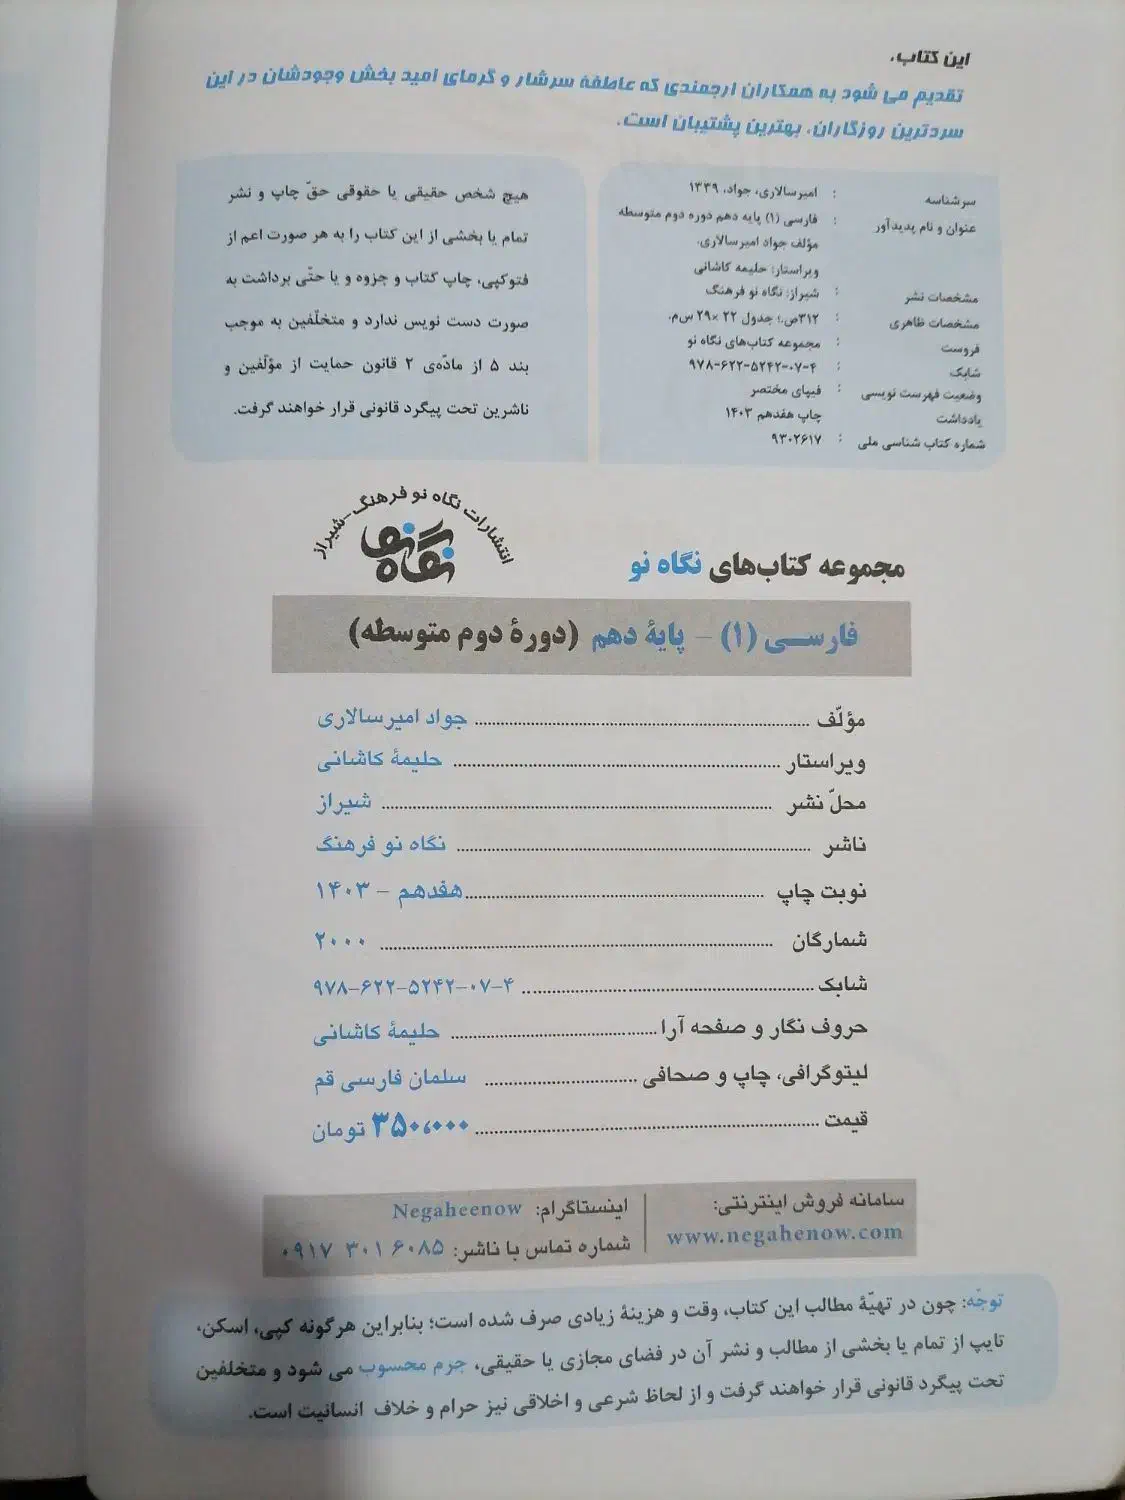 این کتاب،
تقدیم می شود به همکاران ارجمندی که عاطفهٔ سرشار و گرمای امید بخش وجودشان در این
سردترین روزگاران، بهترین پشتیبان است.
سرشناسه : امیرسالاری، جواد، ۱۳۳۹
عنوان و نام پدیدآور : فارسی (۱) پایه دهم دوره دوم متوسطه
مؤلف جواد امیرسالاری.
ویراستار: حلیمه کاشانی
مشخصات نشر : شیراز: نگاه نو فرهنگ
مشخصات ظاهری : ۳۱۲ص.؛ جدول ۲۲ ×۲۹ س‌م.
فروست : مجموعه کتاب‌های نگاه نو
شابک : ۹۷۸-۶۲۲-۵۲۴۲-۰۷-۴
وضعیت فهرست نویسی : فیپای مختصر
یادداشت چاپ هفدهم ۱۴۰۳
شماره کتاب شناسی ملی : ۹۳۰۲۶۱۷
هیچ شخص حقیقی یا حقوقی حقّ چاپ و نشر
تمام یا بخشی از این کتاب را به هر صورت اعم از
فتوکپی، چاپ کتاب و جزوه و یا حتّی برداشت به
صورت دست نویس ندارد و متخلّفین به موجب
بند ۵ از مادّه‌ی ۲ قانون حمایت از مؤلّفین و
ناشرین تحت پیگرد قانونی قرار خواهند گرفت.
انتشارات نگاه نو فرهنگ-شیراز
نگاه نو
مجموعه کتاب‌های نگاه نو
فارسی (۱) – پایهٔ دهم (دورهٔ دوم متوسطه)
مؤلّف ........ جواد امیرسالاری
ویراستار ........ حلیمهٔ کاشانی
محلّ نشر ........ شیراز
ناشر ........ نگاه نو فرهنگ
نوبت چاپ ........ هفدهم – ۱۴۰۳
شمارگان ........ ۲۰۰۰
شابک ........ ۹۷۸-۶۲۲-۵۲۴۲-۰۷-۴
حروف نگار و صفحه آرا ........ حلیمهٔ کاشانی
لیتوگرافی، چاپ و صحافی ........ سلمان فارسی قم
قیمت ........ ۳۵۰،۰۰۰ تومان
سامانه فروش اینترنتی:
www.negahenow.com
اینستاگرام: Negaheenow
شماره تماس با ناشر: ۰۹۱۷ ۳۰۱ ۶۰۸۵
توجّه: چون در تهیّهٔ مطالب این کتاب، وقت و هزینهٔ زیادی صرف شده است؛ بنابراین هرگونه کپی، اسکن،
تایپ از تمام یا بخشی از مطالب و نشر آن در فضای مجازی یا حقیقی، جرم محسوب می شود و متخلفین
تحت پیگرد قانونی قرار خواهند گرفت و از لحاظ شرعی و اخلاقی نیز حرام و خلاف انسانیت است.